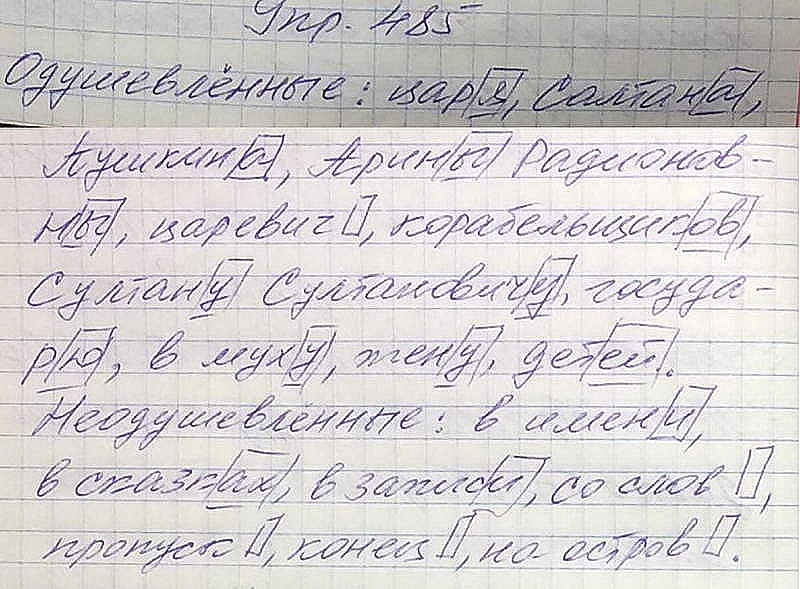 Упр. 485
Одушевлённые: царя, Салтана,
Пушкина, Арины Радионов-
ны, царевич, корабельщиков,
Султану Султановичу, госуда-
рю, в муху, жену, детей.
Неодушевлённые: в имени,
в сказках, в записи, со слов,
пропуск, конец, на остров.